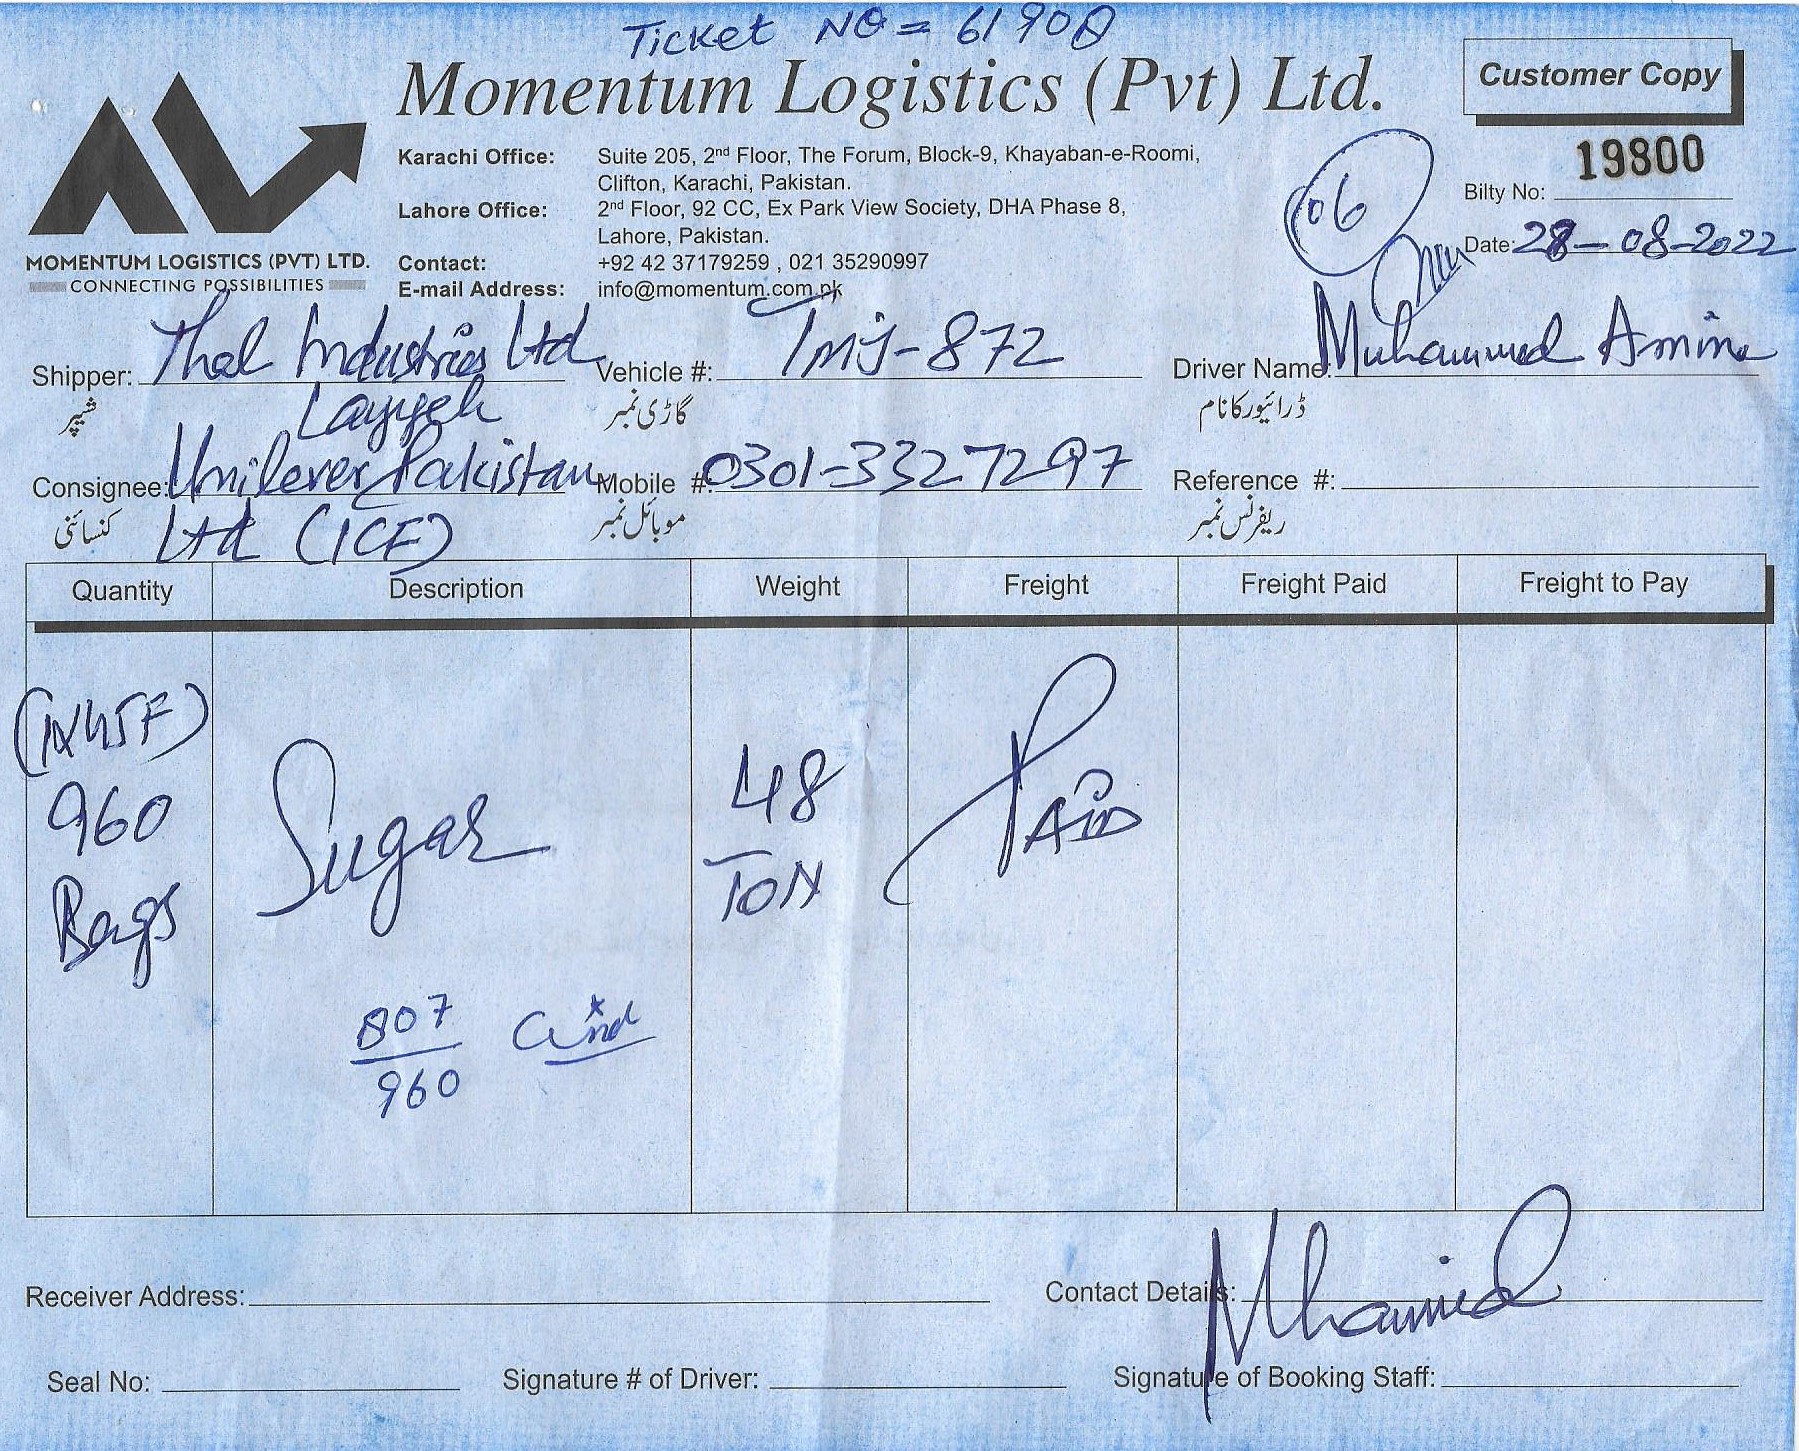 Ticket NO = 61908
Momentum Logistics (Pvt) Ltd.
Customer Copy
MOMENTUM LOGISTICS (PVT) LTD.
CONNECTING POSSIBILITIES
Karachi Office: Suite 205, 2nd Floor, The Forum, Block-9, Khayaban-e-Roomi,
Clifton, Karachi, Pakistan.
Lahore Office: 2nd Floor, 92 CC, Ex Park View Society, DHA Phase 8,
Lahore, Pakistan.
Contact: +92 42 37179259 , 021 35290997
E-mail Address: info@momentum.com.pk
06
Bilty No: 19800
Date: 28-08-2022
Shipper: Thal Industries Ltd Vehicle #: TMJ-872 Driver Name: Muhammad Amin
شپر Layyah گاڑی نمبر ڈرائیور کا نام
Consignee: Unilever Pakistan Mobile #: 0301-3327297 Reference #:
کنسائنی Ltd (ICF) موبائل نمبر ریفرنس نمبر
Quantity Description Weight Freight Freight Paid Freight to Pay
(1X45F)
960 Sugar 48 PAID
Bags TON
807
960
Receiver Address: Contact Details:
Seal No: Signature # of Driver: Signature of Booking Staff: